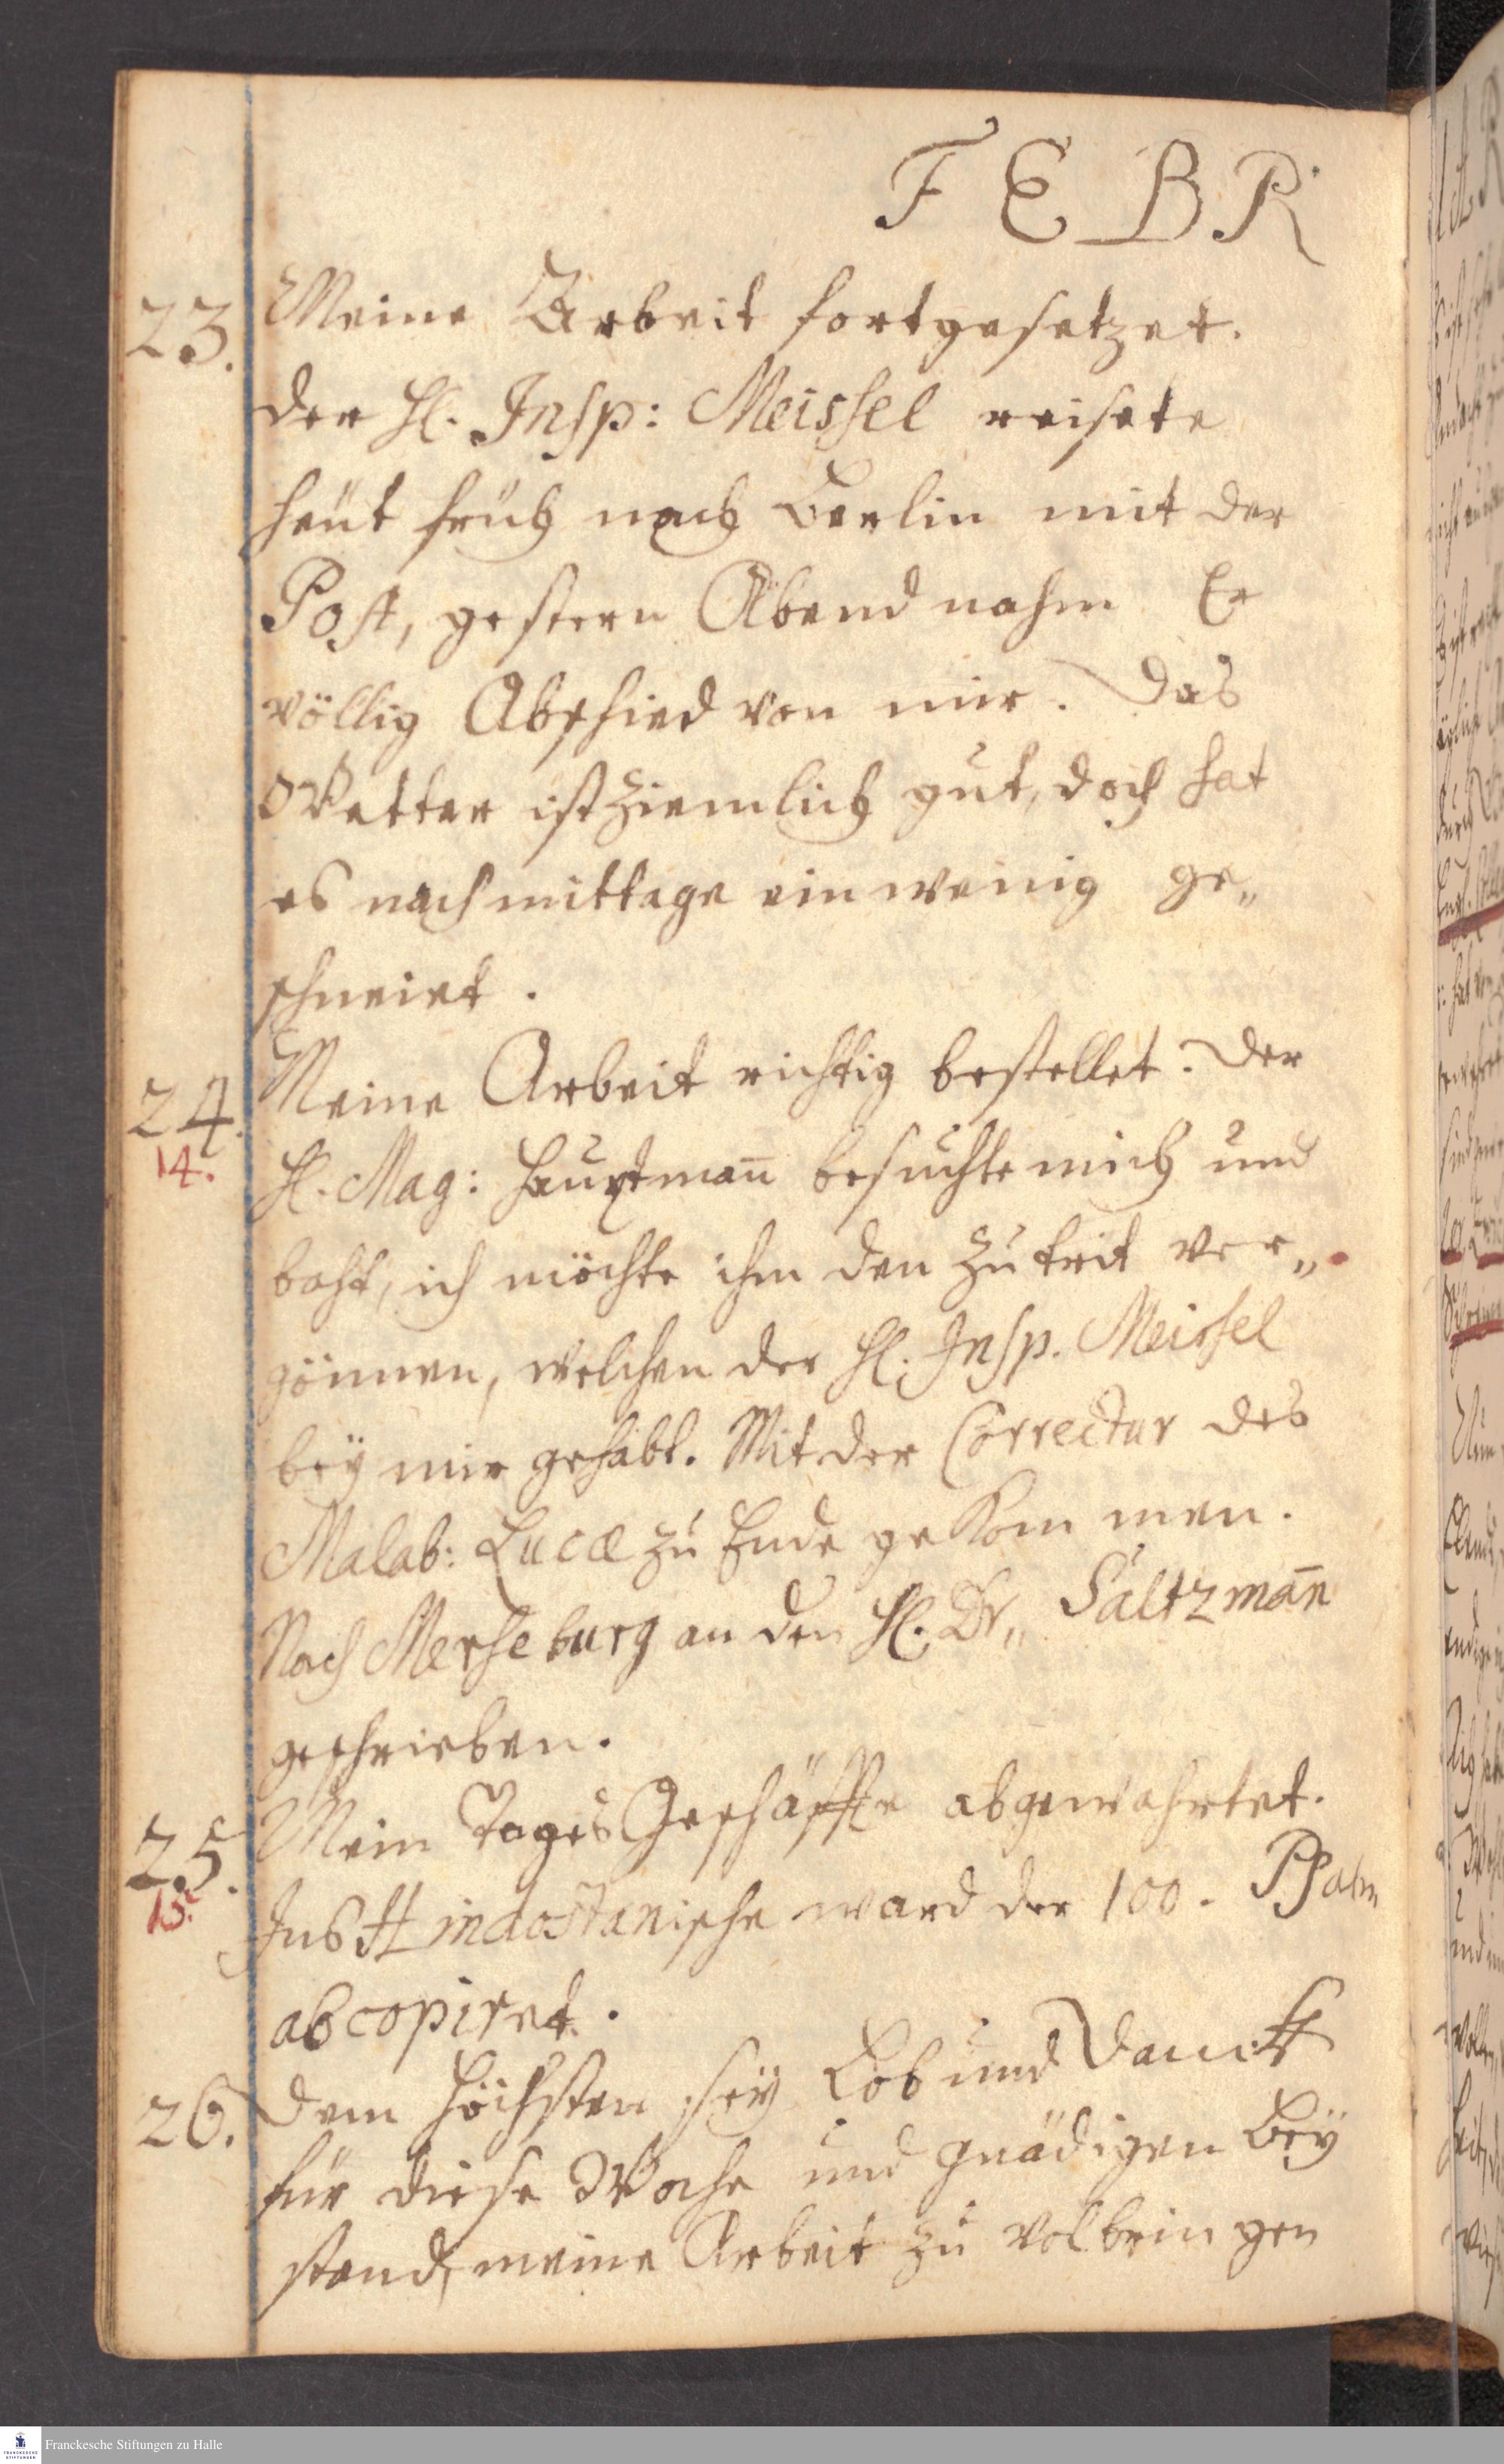 FEBR
23. Meine Arbeit fortgesetzet.
der H. Insp: Meissel reisete
heüt früh nach Berlin mit der
Post, gestern Abend nahm Er
völlig Abschied von mir. Das
Wetter ist ziemlich gut, doch hat
es nachmittage ein wenig ge„
schneiet.
24. Meine Arbeit richtig bestellet. Der
14. H. Mag: Hauptman̄ besuchte mich und
baht, ich möchte ihm den Zutrit ver„
gönnen, welchen der H. Insp. Meissel
beÿ mir gehabt. Mit der Correctur des
Malab: Lucæ zu Ende gekommen.
Nach Merseburg an den H. Dr„ Saltzman̄
geschrieben.
25. Mein Tages Geschäffte abgewahrtet.
15. Ins Hindostanische ward der 100. Psalm
abcopiret.
26. Dem Höchsten seÿ Lob und Danck
für diese Woche und gnädigen Beÿ
stand, meine Arbeit zu volbringen
Franckesche Stiftungen zu Halle